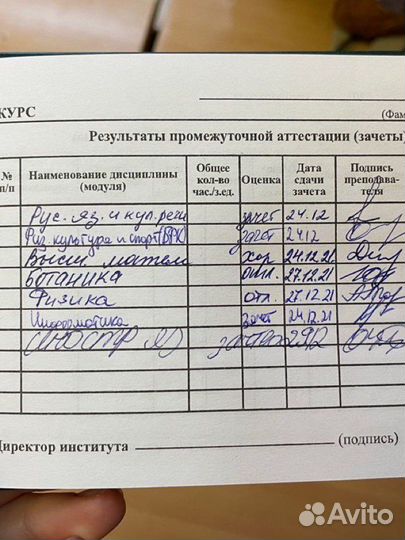 КУРС
(Фам
Результаты промежуточной аттестации (зачеты)
№ п/п Наименование дисциплины (модуля) Общее кол-во час./з.ед. Оценка Дата сдачи зачета Подпись преподава-теля
Рус. яз. и кул. речи зачет 24.12
Физ. культура и спорт зачет 24.12
Высш матем хор 24.12.21
Ботаника отл. 27.12.21
Физика отл. 27.12.21
Информатика зачет 24.12.21
Иностр яз зачет
Директор института (подпись)
Avito